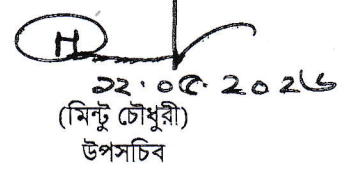 H
১২.০৫.২০২৬
(মিন্টু চৌধুরী)
উপসচিব